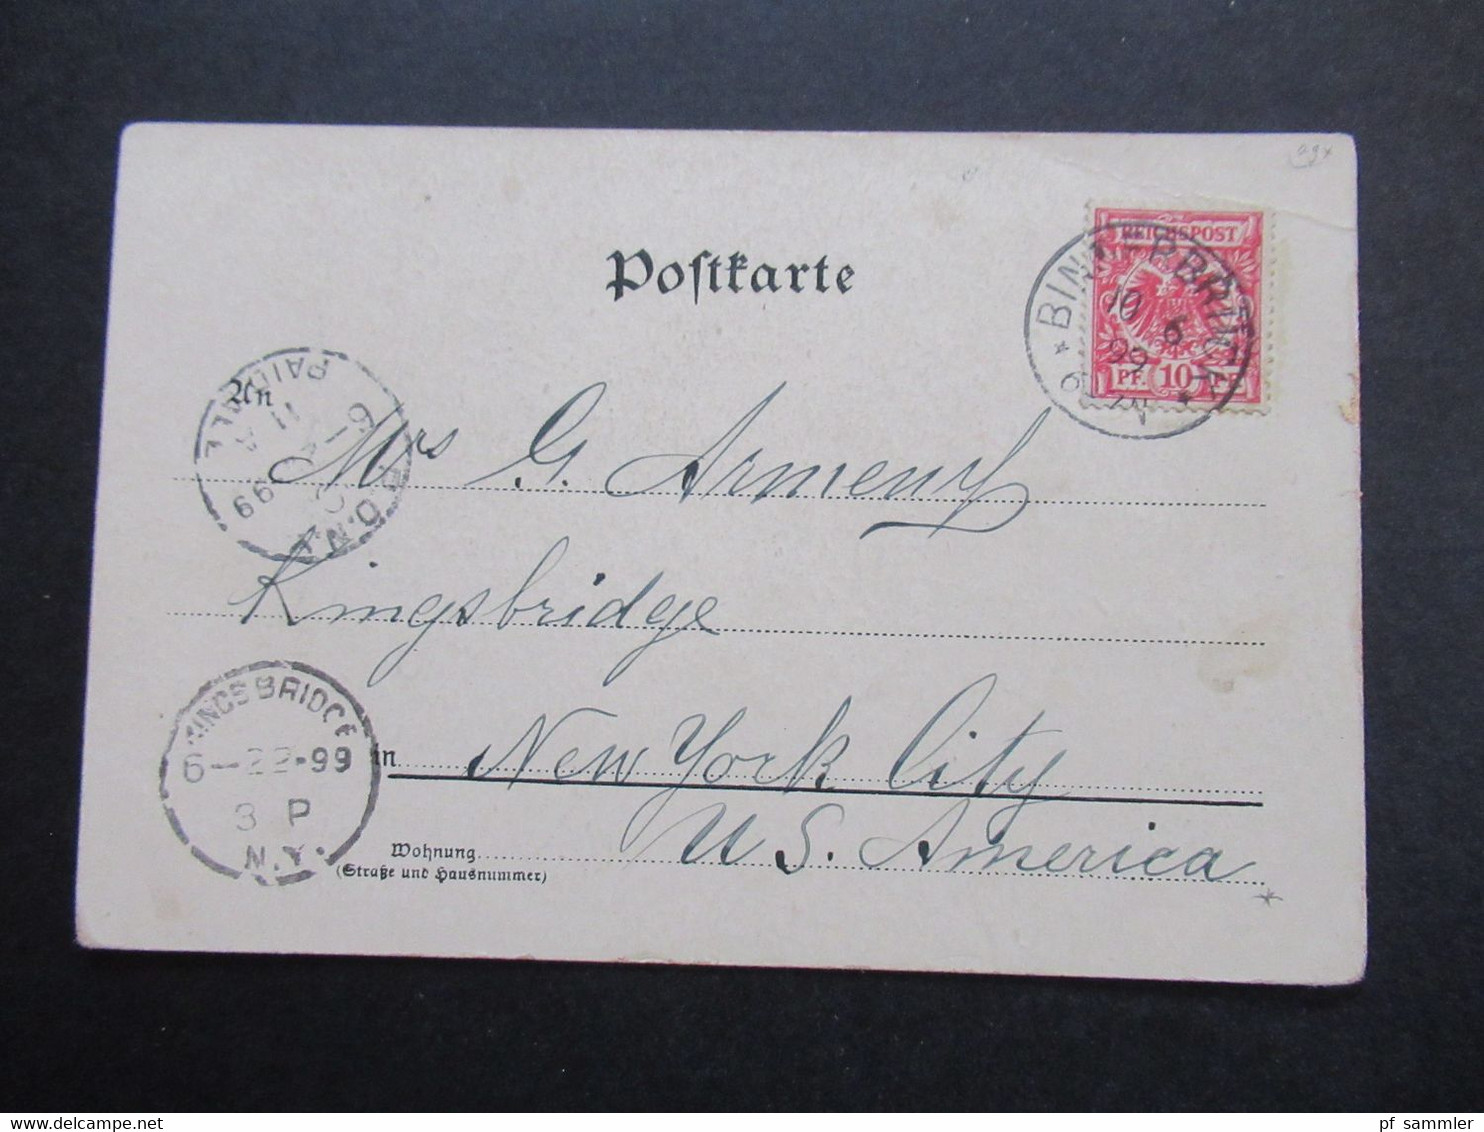 Postkarte
REICHSPOST
BINGERBRÜCK
10 6
99
6-7N
PF. 10 PF.
An
PAID ALL
6—
11 A
99
Mrs G. Armeny
Kingsbridge
KINGSBRIDGE
6—22-99
3 P
N.Y.
in New York City
U S. America
Wohnung
(Straße und Hausnummer)
delcampe.net
pf_sammler